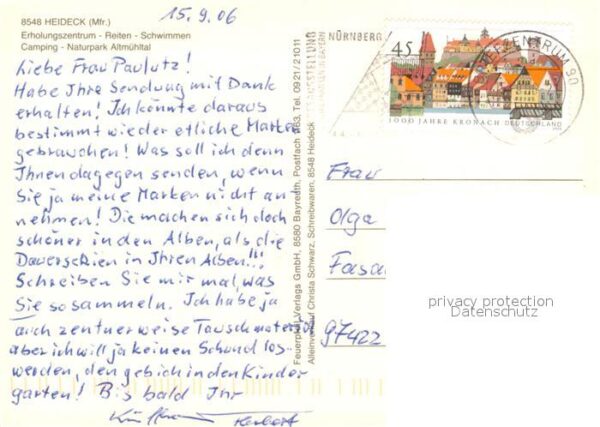 15.9.06
8548 HEIDECK (Mfr.)
Erholungszentrum - Reiten - Schwimmen
Camping - Naturpark Altmühltal
Liebe Frau Paulutz!
Habe Ihre Sendung mit Dank
erhalten! Ich könnte daraus
bestimmt wieder etliche Marken
gebrauchen! Was soll ich denn
Ihnen dagegen senden, wenn
Sie ja meine Marken nicht an-
nehmen! Die machen sich doch
schöner in den Alben, als die
Dauerserien in Ihren Alben!!!
Schreiben Sie mir mal, was
Sie so sammeln. Ich habe ja
auch zentnerweise Tauschmaterial
aber ich will ja keinen Schund los-
werden, den geb ich in den Kinder
garten! Bis bald Ihr
Herbert
Feuerpfeil Verlags GmbH, 8580 Bayreuth, Postfach 563, Tel. 0921/21011
Alleinverkauf Christa Schwarz, Schreibwaren, 8548 Heideck
NÜRNBERG
45
1000 JAHRE KRONACH DEUTSCHLAND
ZENTRUM 90
Frau
Olga
97422
privacy protection
Datenschutz